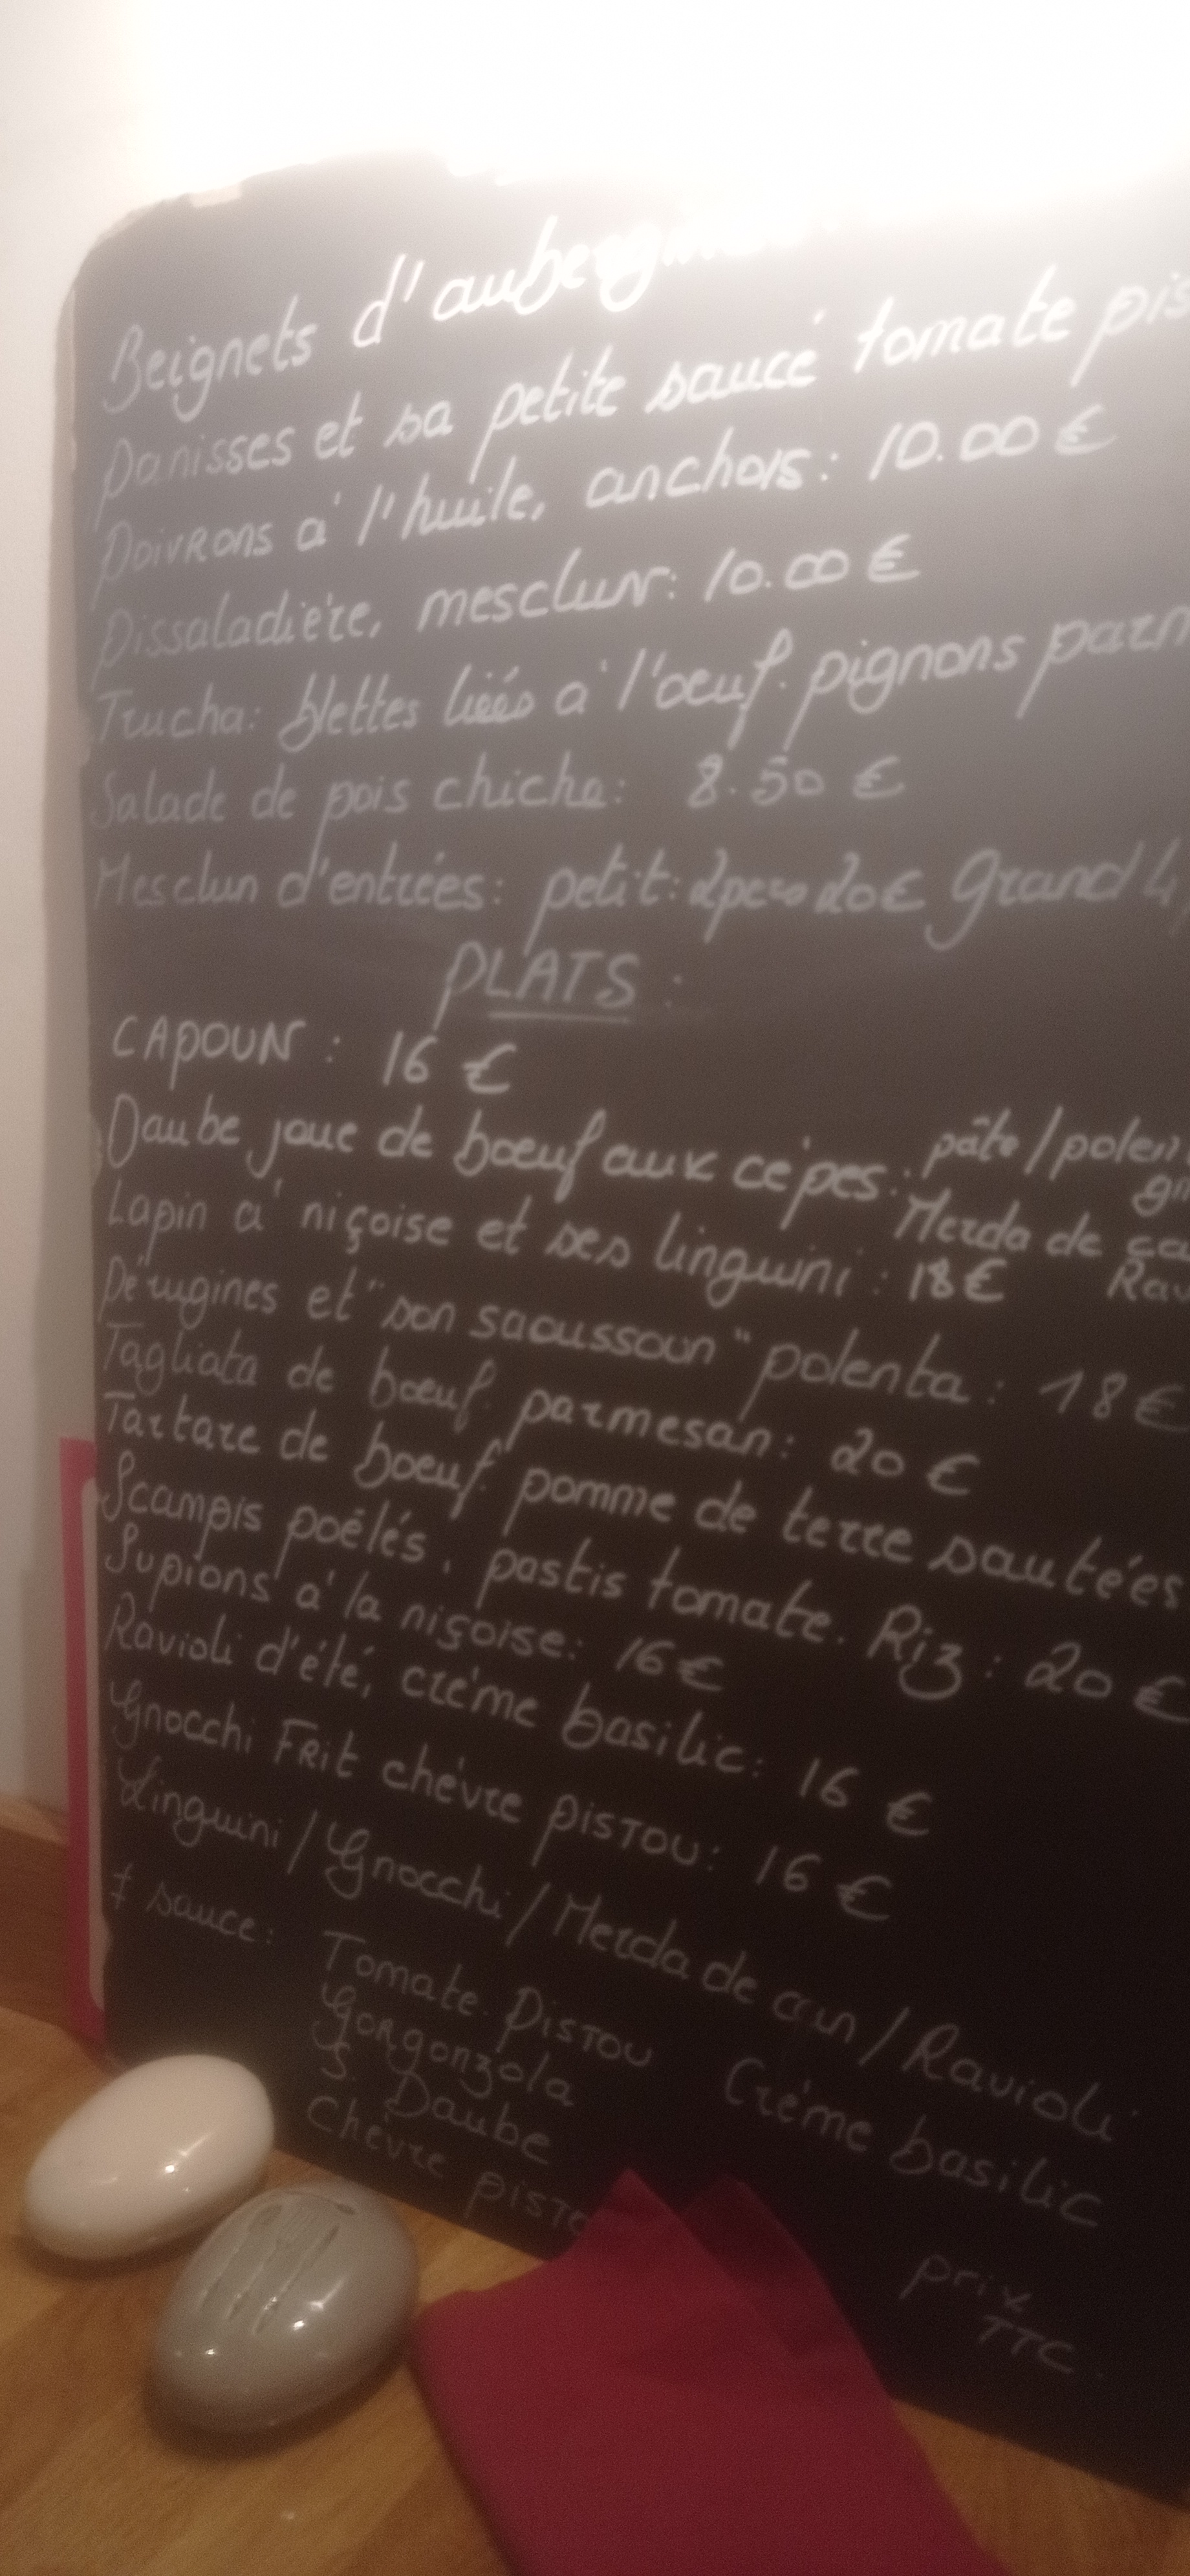 Beignets d'aubergin
Panisses et sa petite sauce tomate pis
Poivrons à l'huile, anchois: 10.00 €
Pissaladière, mesclun: 10.00 €
Trucha: blettes liées à l'oeuf. pignons parm
Salade de pois chiche: 8.50 €
Mesclun d'entrées: petit: 2pers 20€ Grand 4
PLATS:
CAPOUN: 16 €
Daube joue de boeuf aux cèpes: pâte/polen
gn
Merda de ca
Lapin à niçoise et ses linguini: 18€ Rav
Pérugines et "son saoussoun" polenta: 18€
Tagliata de boeuf. parmesan: 20 €
Tartare de boeuf. pomme de terre sautées
Scampis poêlés, pastis tomate. Riz: 20 €
Supions à la niçoise: 16€
Ravioli d'été, crème basilic: 16 €
Gnocchi Frit chèvre PISTOU: 16 €
Linguini/Gnocchi/Merda de can/Ravioli
≠ sauce: Tomate. PISTOU Crème basilic
Gorgonzola
S. Daube
Chèvre PISTO
prix
TTC.